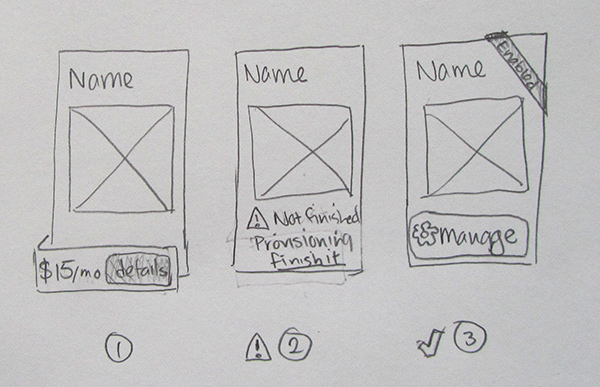 Name
$15/mo details
1
Name
Not finished
Provisioning
finish it
2
Name
Enabled
manage
3